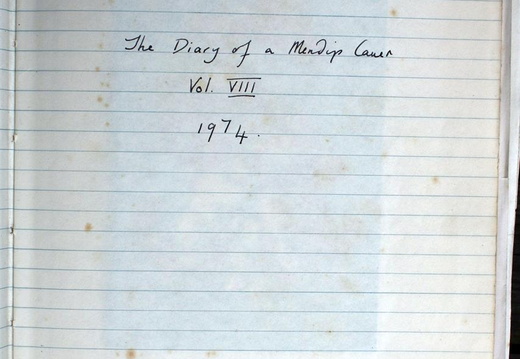 The Diary of a Mendip Caver
Vol. VIII
1974.